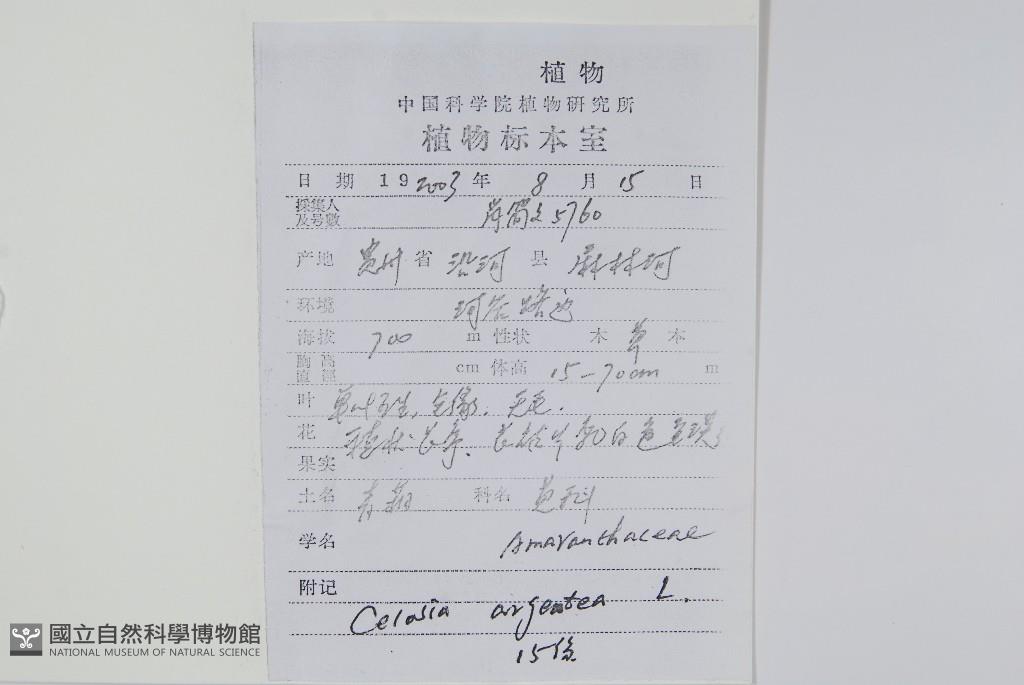 植物
中国科学院植物研究所
植物标本室
日 期 19 2003 年 8 月 15 日
採集人
及号数 5760
产地 贵州 省 沿河 县 麻林河
环境 河谷路边
海拔 700 m 性状 木 草 本
胸高
直径 cm 体高 15-70cm m
叶 单叶互生, 全缘. 无毛.
花 穗状花序.
果实
土名 青葙 科名 苋科
学名 Amaranthaceae
附记
Celosia argentea L.
15份
國立自然科學博物館
NATIONAL MUSEUM OF NATURAL SCIENCE